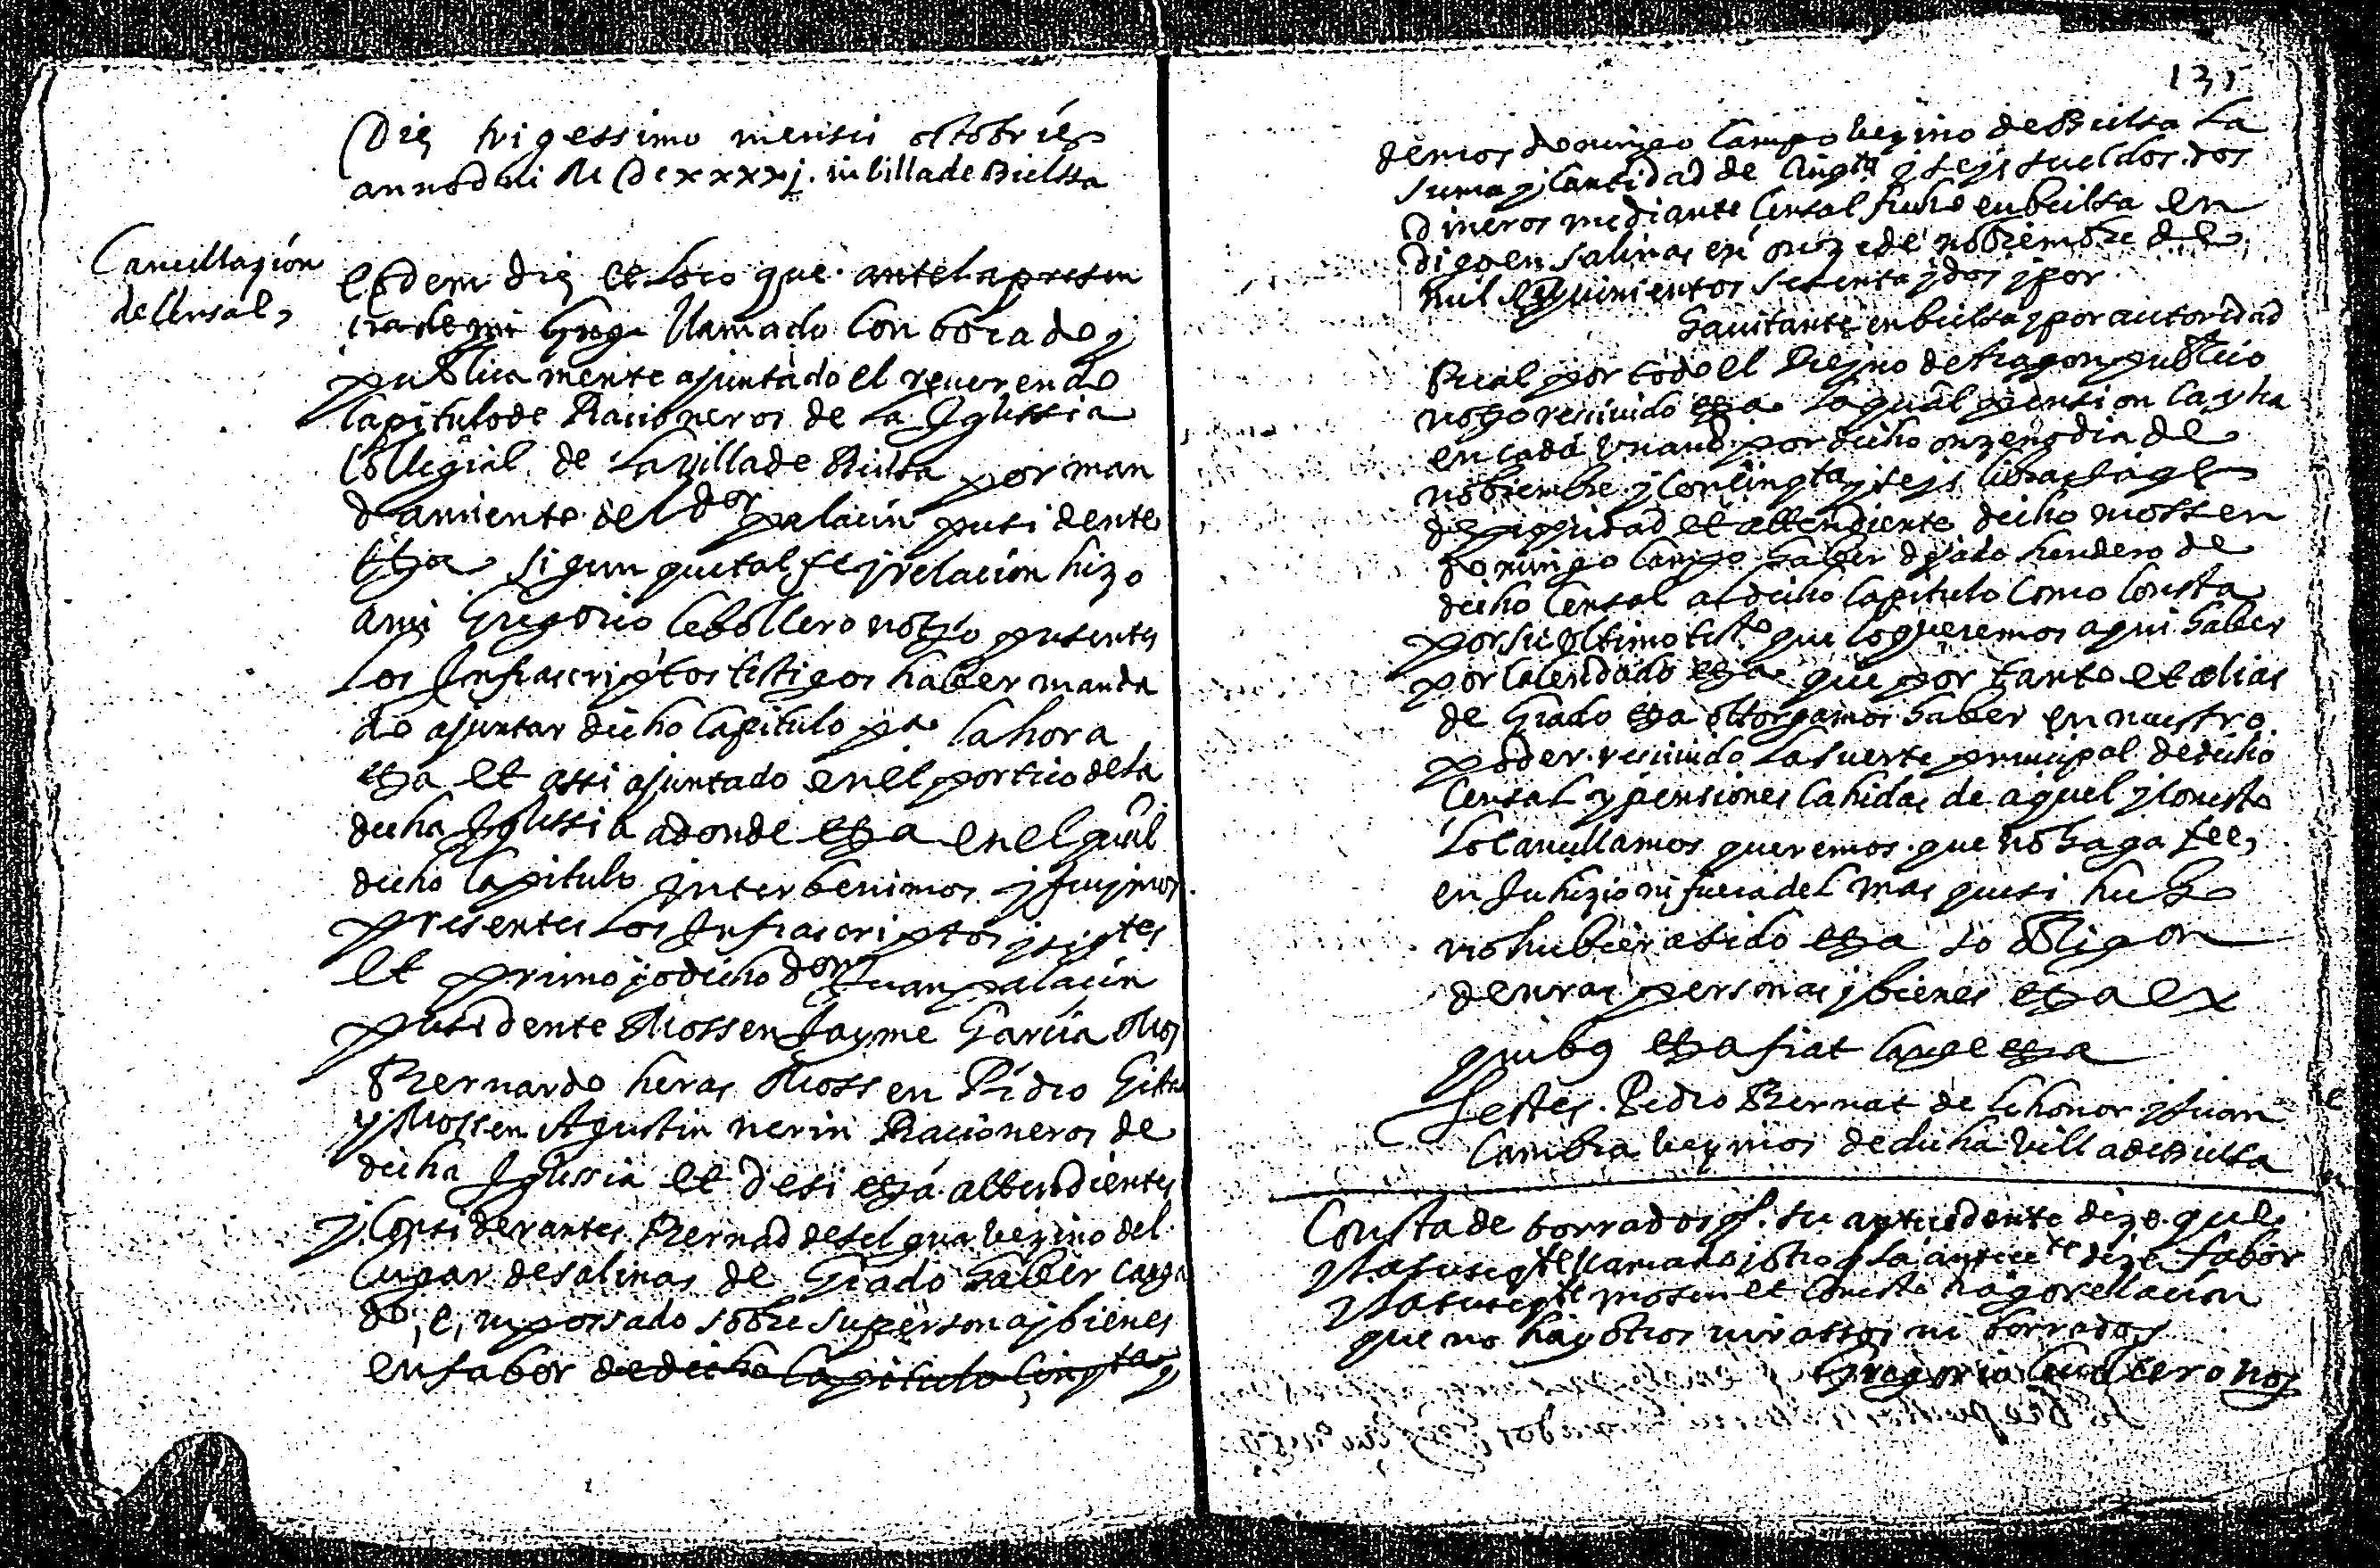 Die trigessimo mensis octobris
anno dni M Dcxxxxj. in billa de Bielssa
Cancillazion
de Censal,
Eodem die et loco que ante la presen
cia de mi Greg llamado con boca de y
publicamente ajuntado el reuerendo
capitulo de Racioneros de la Iglessia
Collegial de la villa de Bielsa por man
damiento del dor palacin presidente
etza sigun que tal fe y relacion hizo
a mi Gregorio Cebollero notrio presentes
los Infrascriptos testigos haber manda
do ajuntar dicho capitulo pa la hora
etza et assi ajuntado en el portico de la
dicha Iglessia adonde etza en el qual
dicho capitulo Interbenimos y fuymos
presentes los Infrascriptos y sigtes
Et primo jo dicho dor Juan palacin
presidente Mossen Jayme Garcia Mos
Bernardo heras Mossen Pedro
y Mossen Agustin nerin Racioneros de
dicha Iglessia et desi etza attendientes
y Considerantes Bernad de sel gua bezino del
lugar de salinas de Grado haber carga
do, e, inpossado sobre su persona y bienes
en fabor de dicho capitulo cinqta y
131
de mos domingo Campo bezino de Bielsa la
suma y cantidad de cinqta y seys sueldos dos
dineros mediante Censal fecho en bielsa en
digo en salinas en onze de nobiembre de
mil y quinientos setenta y dos y por
hauitante en bielsa y por autoridad
Rual por todo el Reyno de Aragon publico
nogo reciuido etza la qual pension cay ha
en cada vn ano por dicho onzeno dia de
nobiembre y con cinqta y seys libras jaqs
de propiedad et attendiente dicho mossen
domingo Campo haber dejado heredero de
dicho Censal al dicho capitulo como consta
por su vltimo testo que lo queremos aqui haber
por calendado etza que por tanto et alias
de Grado etza ottorgamos haber en nuestro
poder reciuido la suerte principal de dicho
Censal y pensiones cahidas de aquel y con esto
lo cancillamos queremos que no haga fee,
en Juhizio ni fuera del mas que si hecho
no hubiera sido etza so obligon
de nras personas y bienes etza ex
quibs etza fiat large etza
Testes Pedro Bernat de lihonor y Juan
Cambra bezinos de dicha villa de Bielsa
Consta de borrados q. su antecedente dize que
y la susigte llamado y otro q la antecte dize fabor
y la susigte mosen et con esto hago relacion
que no hay otros ni rassos ni borrados
Gregorio Cebollero nog